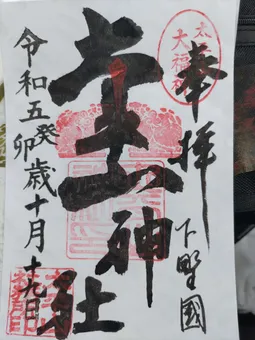 奉拝
下野國
太平山神社
令和五癸卯歳十月十九日